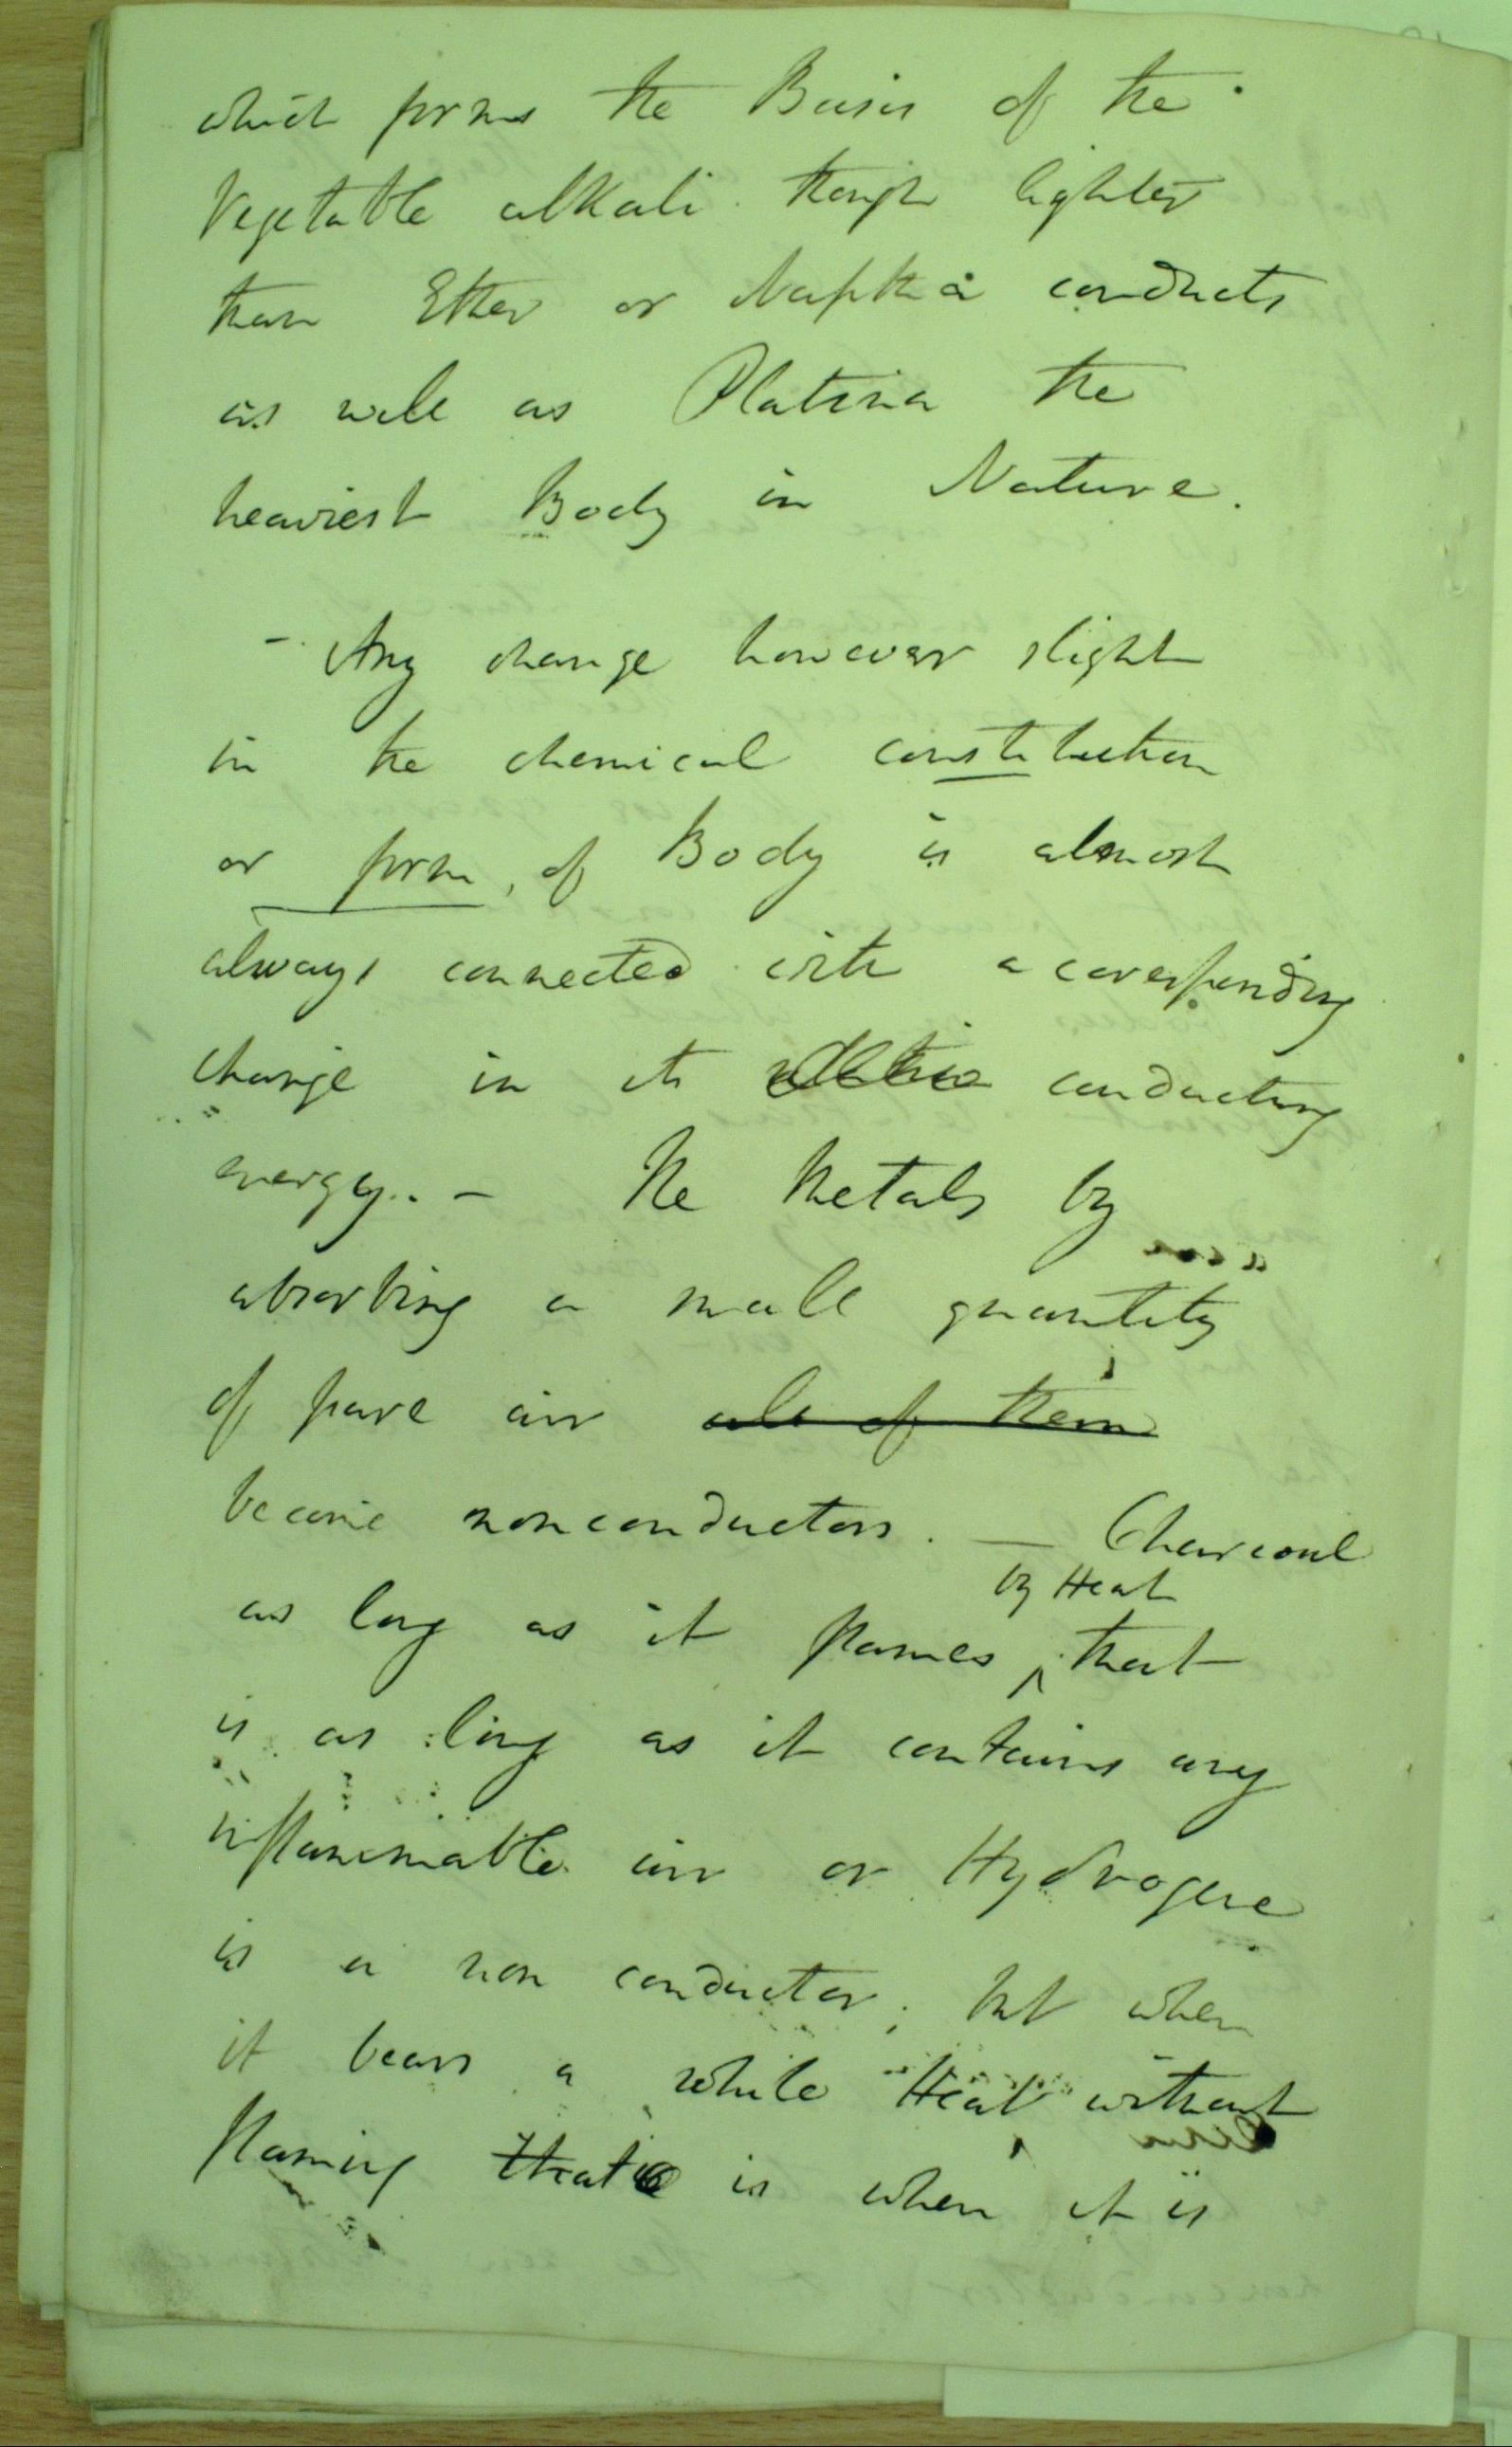 which forms the Basis of the
Vegetable alkali though lighter
than Ether or Naptha conducts
as well as Platina the
heaviest Body in Nature.
- Any change however slight
in the chemical constitution
or form, of Body is almost
always connected with a coresponding
change in its conducting
energy. - The Metals by
absorbing a small quantity
of pure air all of them
become nonconductors. — Charcoal
by Heat
as long as it flames ^ that
is as long as it contains any
inflammable air or Hydrogene
is a non conductor; but when
it bears a white Heat without
flaming that is is when it is